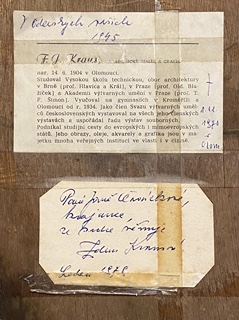 V oderských vrších
1945
F. J. Kraus,
nar. 14. 6. 1904 v Olomouci.
Studoval Vysokou školu technickou, obor architektury
v Brně (prof. Hlavica a Král), v Praze (prof. Old. Bla-
žíček) a Akademii výtvarných umění v Praze (prof. T.
F. Šimon). Vyučoval na gymnasiích v Kroměříži a
Olomouci od r. 1934. Jako člen Svazu výtvarných uměl-
ců československých vystavoval na všech jeho členských
výstavách a uspořádal řadu výstav souborných.
Podnikal studijní cesty do evropských i mimoevropských
států, jeho obrazy, oleje, akvarely a grafika jsou v ma-
jetku mnoha veřejných institucí ve vlasti i v cizině.
Paní
ze srdce věnuje
Leden 1979